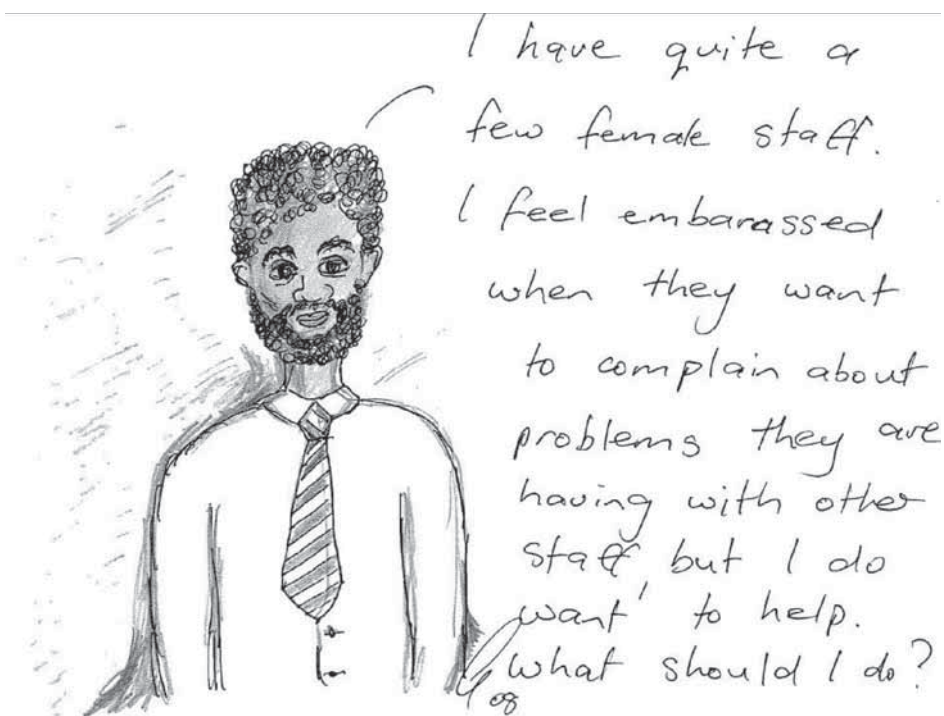 I have quite a
few female staff.
I feel embarassed
when they want
to complain about
problems they are
having with other
staff, but I do
want to help.
What should I do?
08